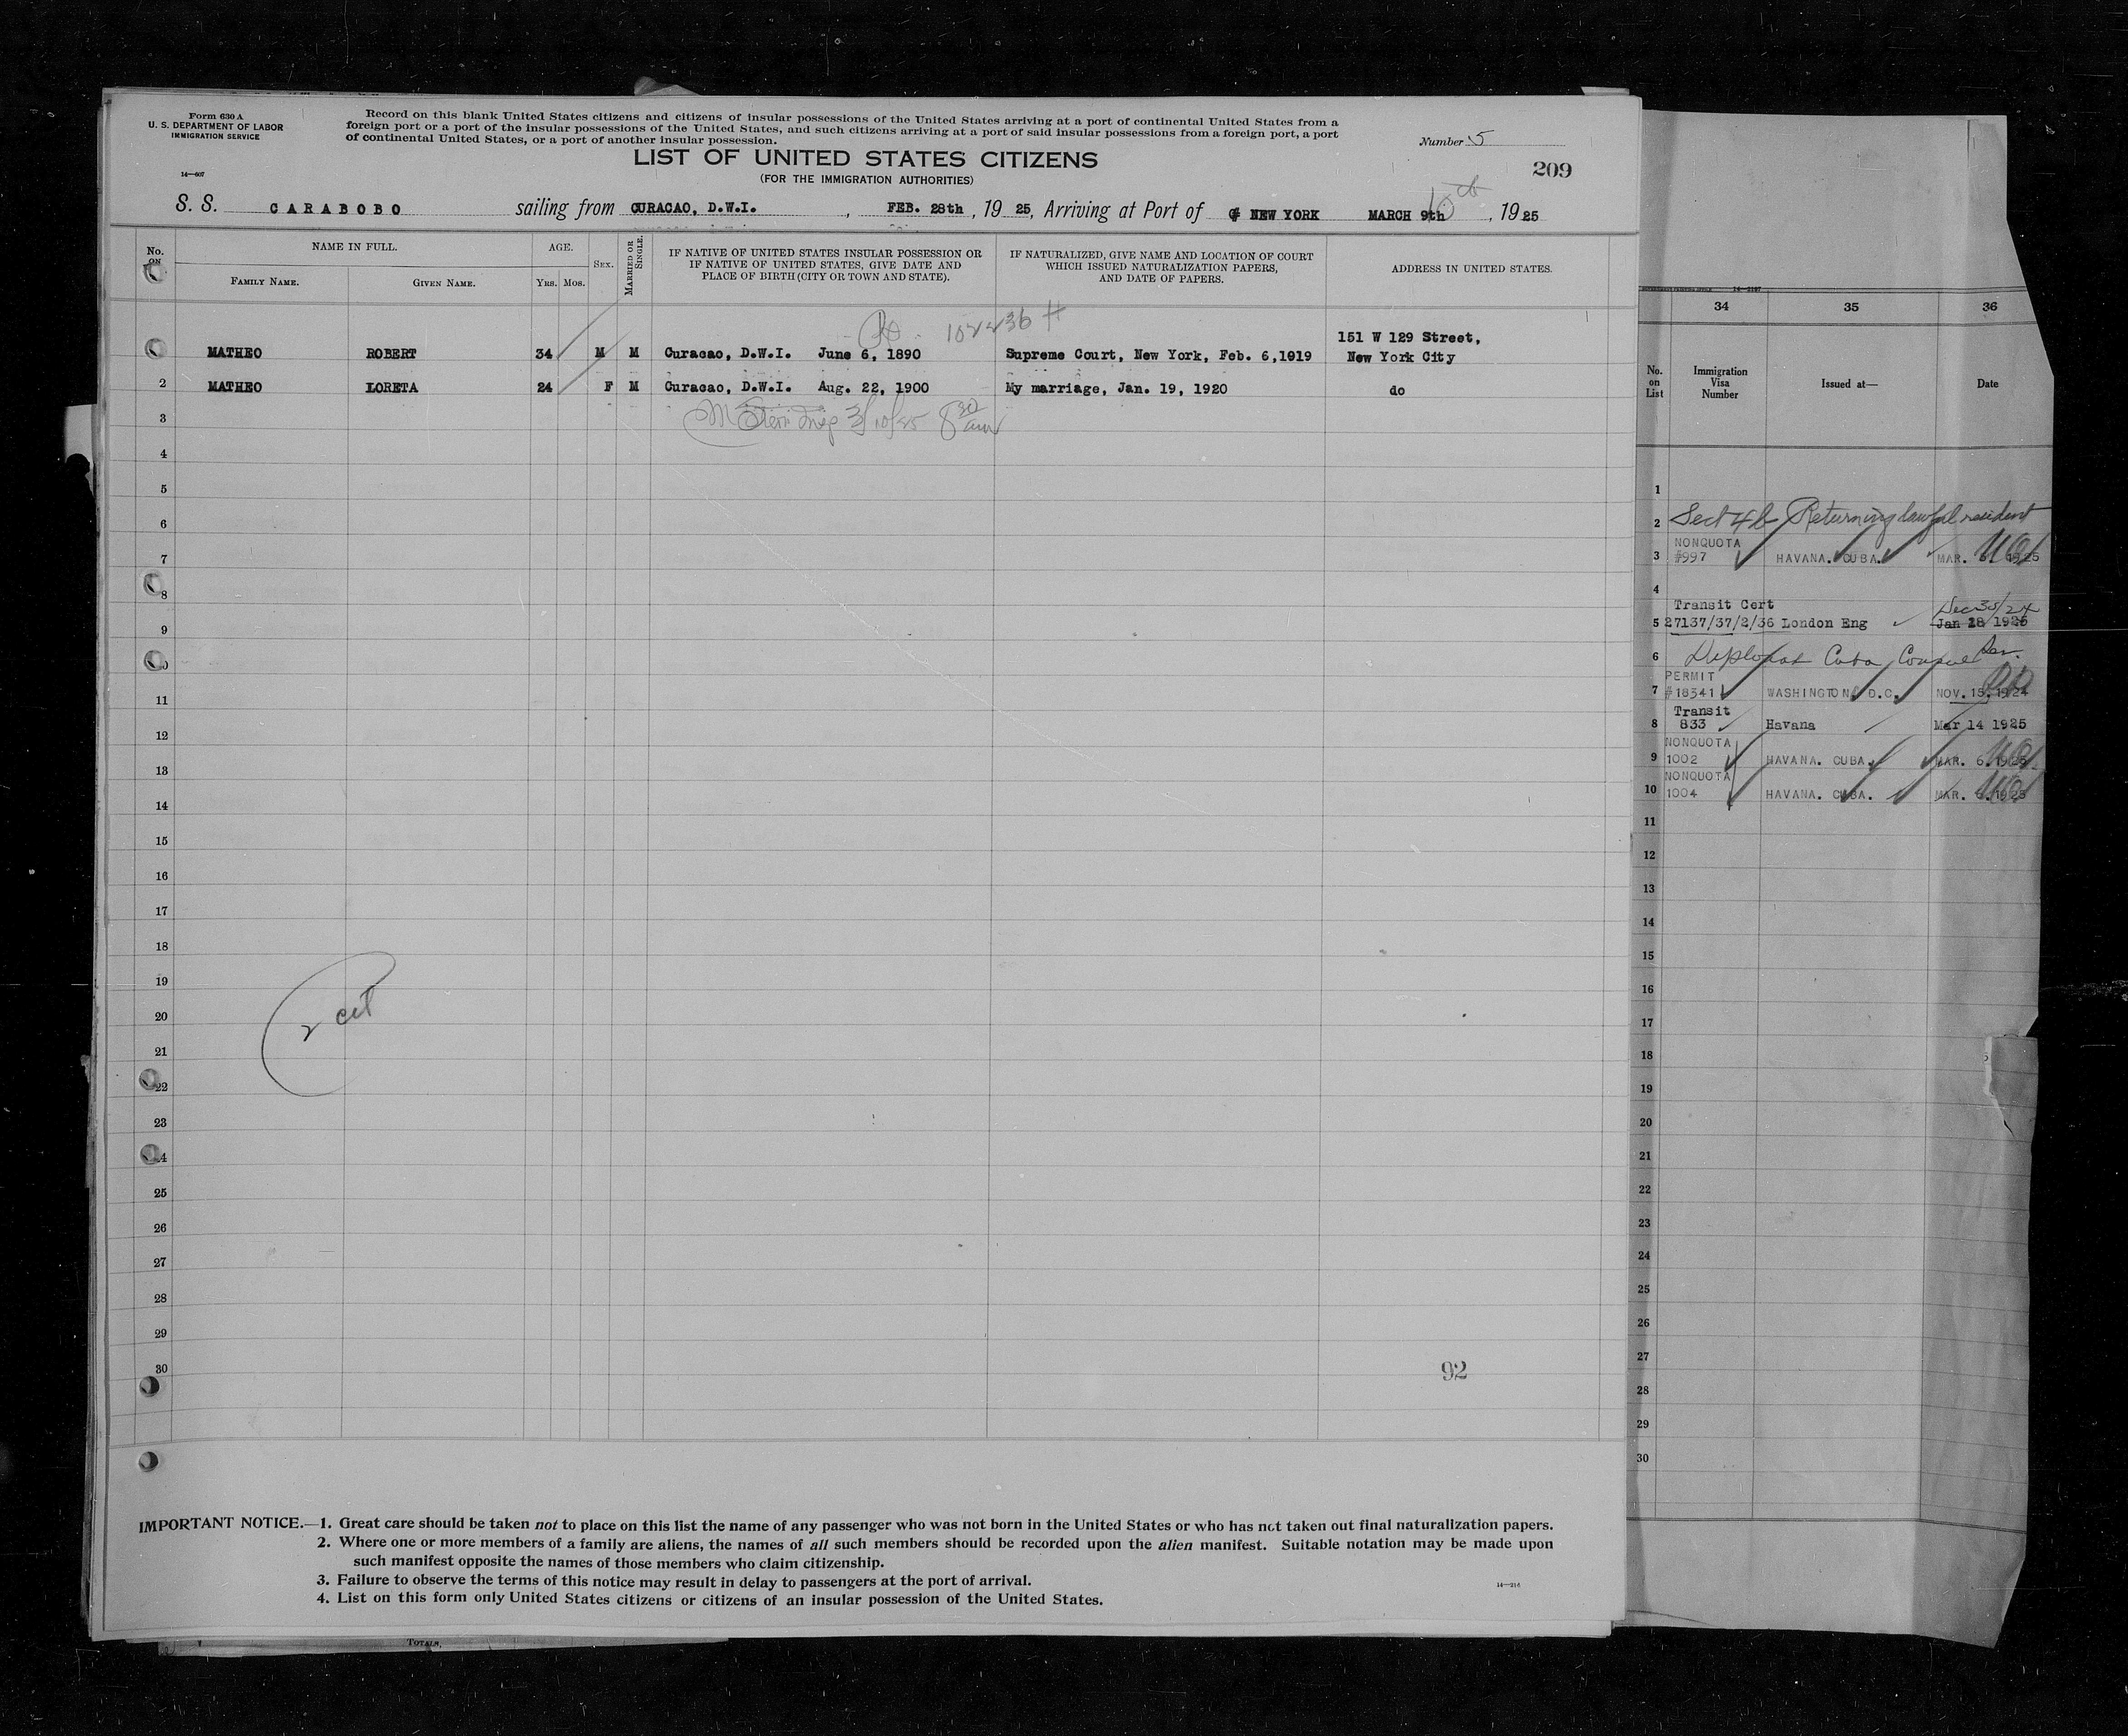 Form 630 A
U. S. DEPARTMENT OF LABOR
IMMIGRATION SERVICE
14—607
Record on this blank United States citizens and citizens of insular possessions of the United States arriving at a port of continental United States from a
foreign port or a port of the insular possessions of the United States, and such citizens arriving at a port of said insular possessions from a foreign port, a port
of continental United States, or a port of another insular possession.
Number 5
LIST OF UNITED STATES CITIZENS
(FOR THE IMMIGRATION AUTHORITIES)
209
10th
S. S. CARABOBO sailing from CURACAO, D.W.I., FEB. 28th, 1925, Arriving at Port of NEW YORK MARCH 9th, 1925
No. ON
NAME IN FULL.
FAMILY NAME. GIVEN NAME.
AGE.
YRS. MOS.
SEX.
MARRIED OR SINGLE.
IF NATIVE OF UNITED STATES INSULAR POSSESSION OR
IF NATIVE OF UNITED STATES, GIVE DATE AND
PLACE OF BIRTH (CITY OR TOWN AND STATE).
IF NATURALIZED, GIVE NAME AND LOCATION OF COURT
WHICH ISSUED NATURALIZATION PAPERS,
AND DATE OF PAPERS.
ADDRESS IN UNITED STATES.
151 W 129 Street,
MATHEO ROBERT 34 M M Curacao, D.W.I. June 6, 1890 Supreme Court, New York, Feb. 6,1919 New York City
2 MATHEO LORETA 24 F M Curacao, D.W.I. Aug. 22, 1900 My marriage, Jan. 19, 1920 do
3 3/10/25 8 30 am
4
5
6
7
8
9
11
12
13
14
15
16
17
18
19
20
2 cit
21
22
23
24
25
26
27
28
29
30
92
IMPORTANT NOTICE.—1. Great care should be taken not to place on this list the name of any passenger who was not born in the United States or who has not taken out final naturalization papers.
2. Where one or more members of a family are aliens, the names of all such members should be recorded upon the alien manifest. Suitable notation may be made upon
such manifest opposite the names of those members who claim citizenship.
3. Failure to observe the terms of this notice may result in delay to passengers at the port of arrival.
4. List on this form only United States citizens or citizens of an insular possession of the United States.
TOTALS,
34 35 36
No. on List
Immigration Visa Number
Issued at—
Date
1
2 Sect 4b Returning lawful resident
NONQUOTA
3 #997 HAVANA. CUBA. MAR. 1925
4
Transit Cert Dec 30/24
5 27137/37/2/36 London Eng Jan 28 1925
6 Diplomat Cuba Consul
PERMIT
7 #18341 WASHINGTON. D.C. NOV. 15. 1924
Transit
8 833 Havana Mar 14 1925
NONQUOTA
9 1002 HAVANA. CUBA. MAR. 6. 1925
NONQUOTA
10 1004 HAVANA. CUBA. MAR. 1925
11
12
13
14
15
16
17
18
19
20
21
22
23
24
25
26
27
28
29
30